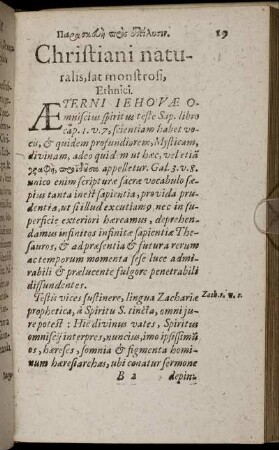 Παρασκευὴ πρὸς ἐπίλυσιν. 19
Christiani natu-
ralis, sat monstrosi,
Ethnici.
ÆTERNI IEHOVÆ O-
mniscius spiritus teste Sap. libro
cap. 1. v. 7, scientiam habet vo-
cis, & quidem profundiorem, Mysticam,
divinam, adeo quidem ut hæc, vel etiã
γραφὴ, appelletur. Gal. 3. v. 8.
unico enim scripturæ sacræ vocabulo sæ-
pius tanta inest sapientia, provida pru-
dentia, ut si illud excutiamꝰ, nec in su-
perficie exteriori hæreamus, deprehen-
damus infinitos infinitæ sapientiæ The-
sauros, & ad præsentia & futura rerum
ac temporum momenta sese luce admi-
rabili & prælucente fulgore penetrabili
diffundentes.
Testis vices sustinere, lingua Zachariæ Zach. 5. v. 5.
prophetica, à Spiritu S. tincta, omni ju-
re potest: Hic divinus vates, Spiritus
omniscij interpres, nuncius, imo ipsissimũ
os, hæreses, somnia & figmenta homi-
num hæresiarchas, ubi conatur sermone
B 2 depin-